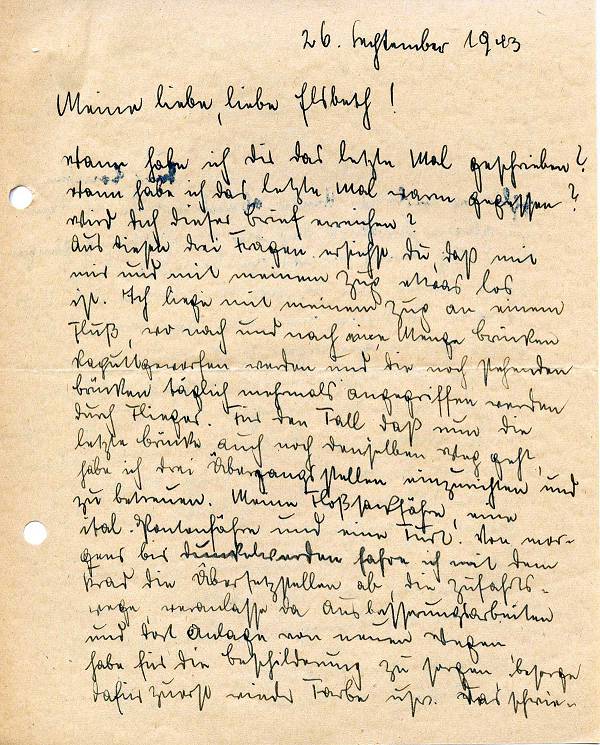 26. September 1943
Meine liebe, liebe Elsbeth!
Wann habe ich dir das letzte Mal geschrieben?
Wann habe ich das letzte Mal warm gegessen?
Wird dich dieser Brief erreichen?
Aus diesen drei Fragen ersiehst du, daß mit
mir und mit meinem Zug etwas los
ist. Ich liege mit meinem Zug an einem
Fluß, wo nach und nach eine Menge Brücken
kaputtgeworfen werden und die noch stehenden
Brücken täglich mehrmals angegriffen werden
durch Flieger. Für den Fall daß nun die
letzte Brücke auch noch denselben Weg geht,
habe ich drei Übergangsstellen einzurichten und
zu betreuen. Meine Floßsackfähre, eine
ital. Pontonfähre und eine Furt. Von mor-
gens bis dunkelwerden fahre ich mit dem
Krad die Übersetzstellen ab, die Zufahrts-
wege, veranlasse da Ausbesserungsarbeiten
und dort Anlage von neuen Wegen
habe für die Beschilderung zu sorgen, besorge
dafür zuerst wieder Farbe usw. Das schwie-